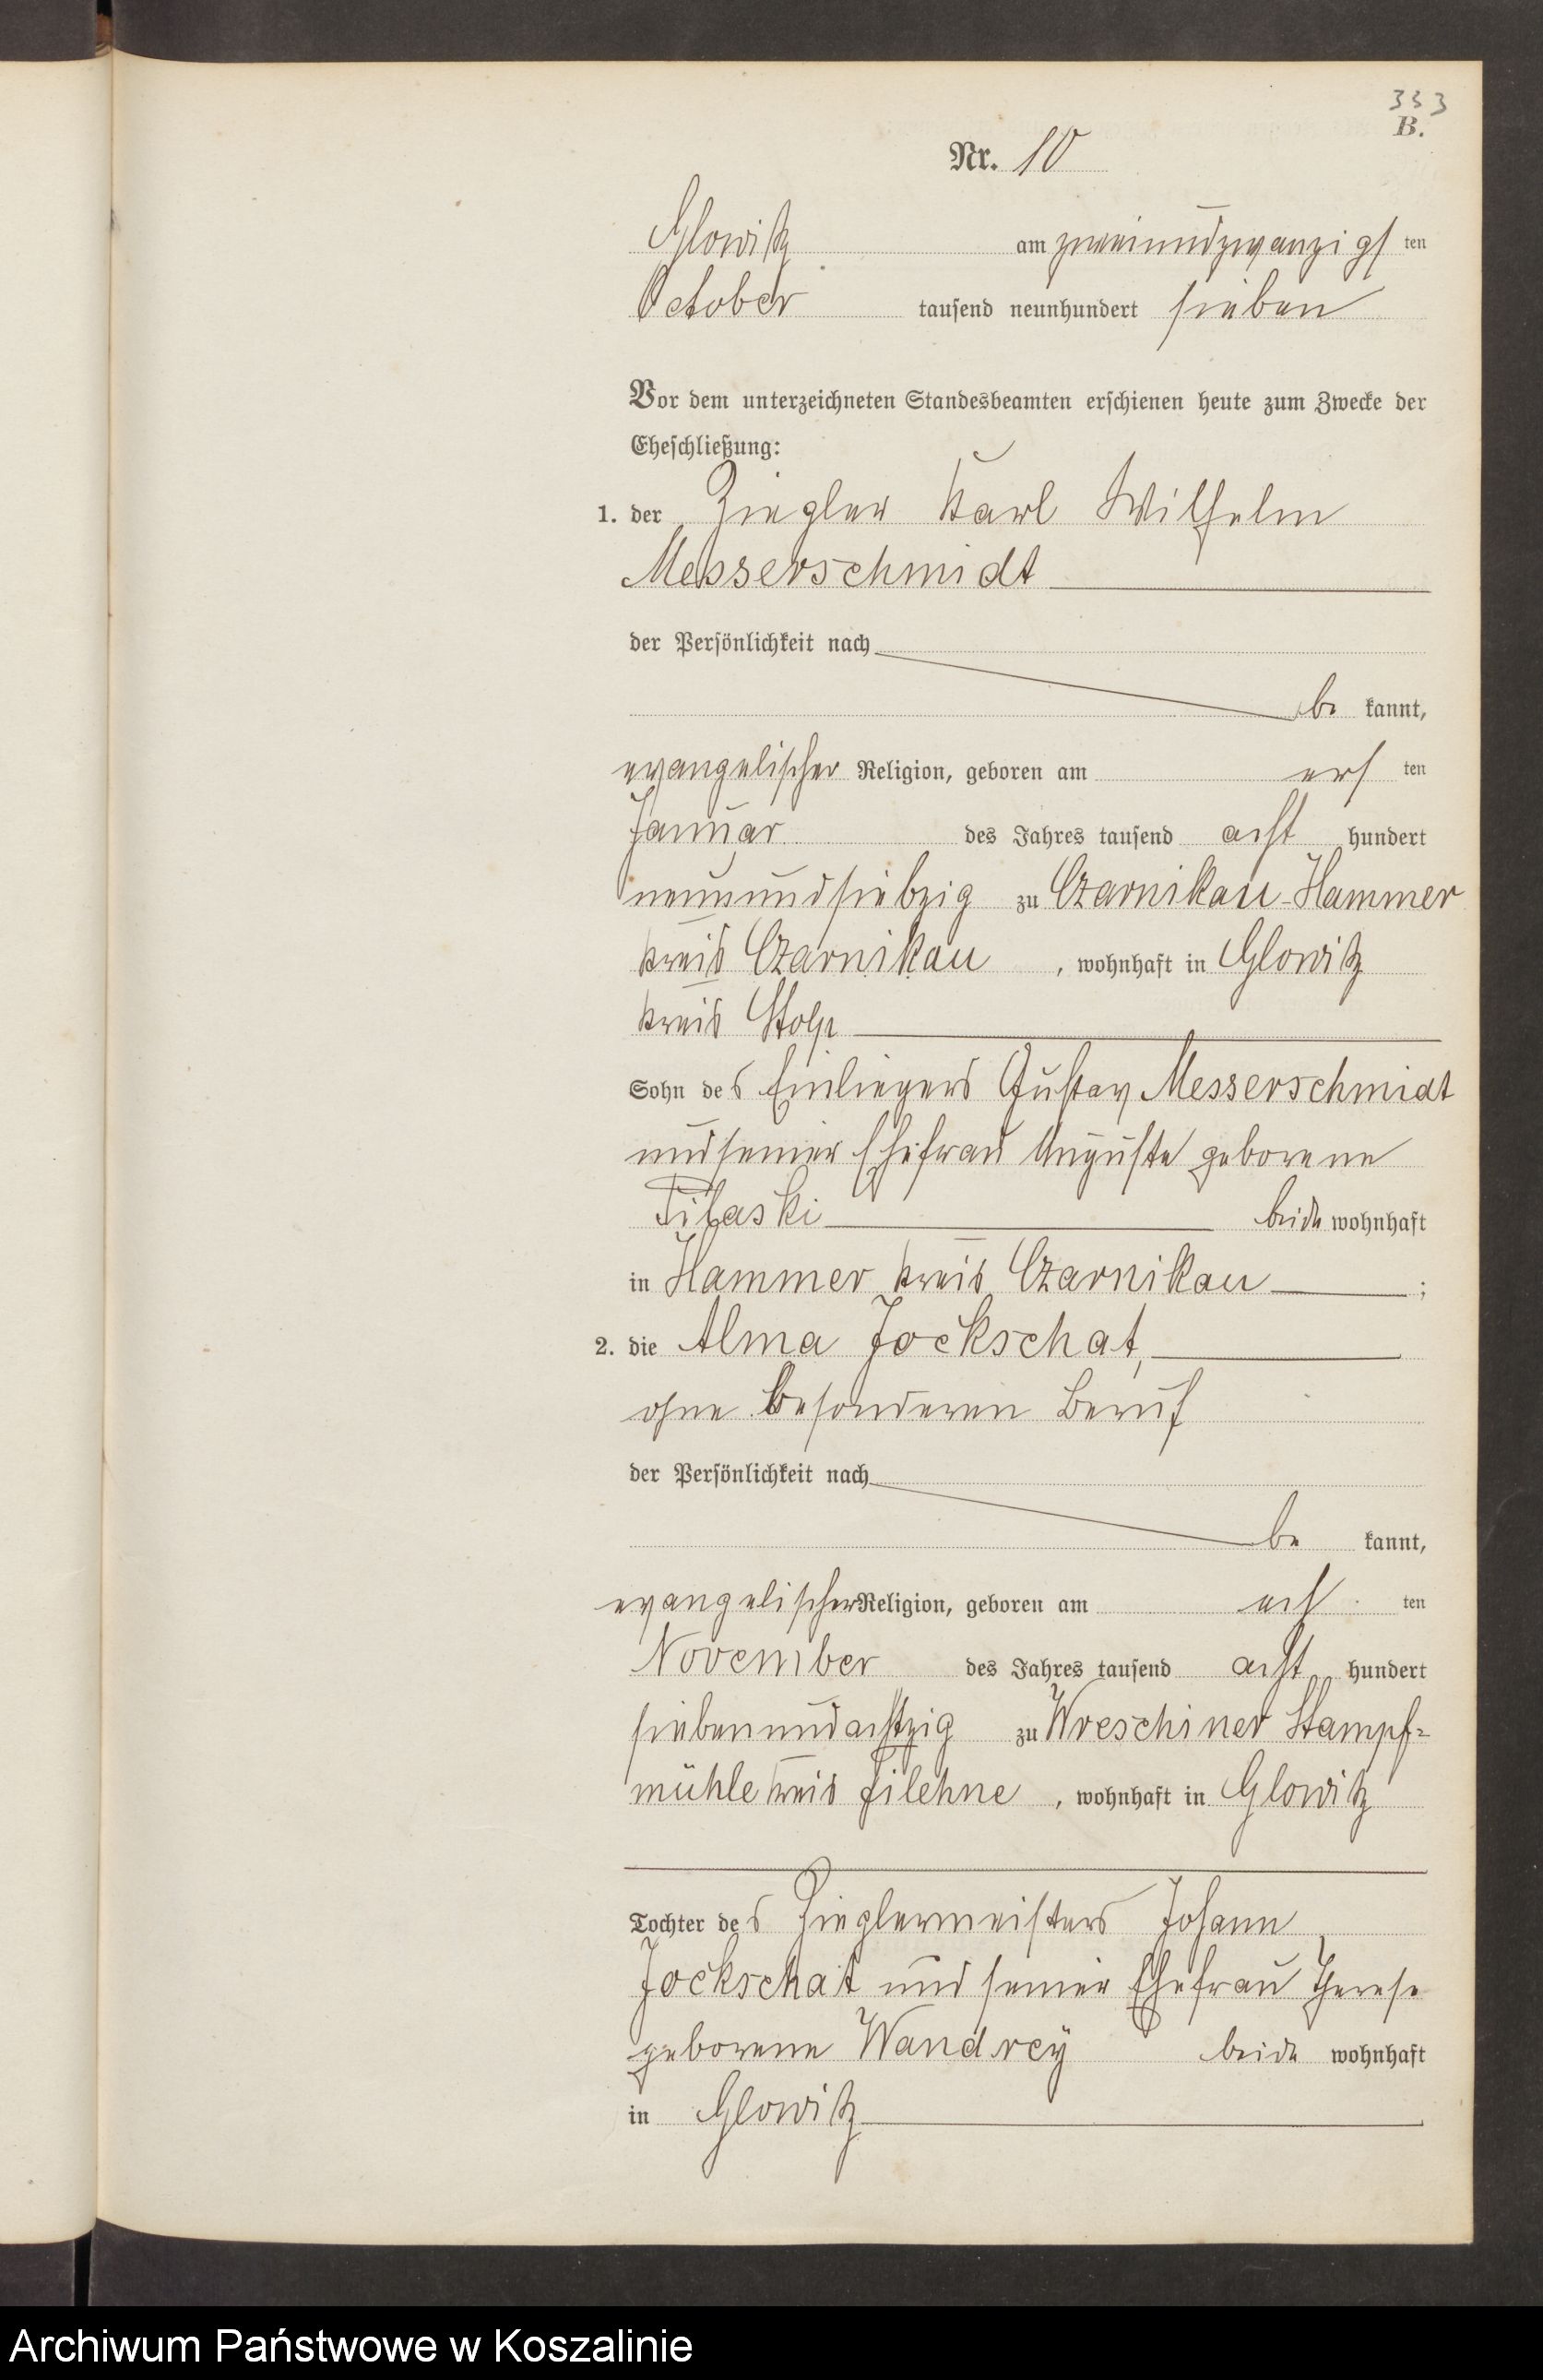 333
B.
Nr. 10
Glowitz am zweiundzwanzigsten
October tausend neunhundert sieben
Vor dem unterzeichneten Standesbeamten erschienen heute zum Zwecke der
Eheschließung:
1. der Ziegler Karl Wilhelm
Messerschmidt
der Persönlichkeit nach
be kannt,
evangelischer Religion, geboren am ersten
Januar des Jahres tausend acht hundert
neunundsiebzig zu Czarnikau-Hammer
Kreis Czarnikau, wohnhaft in Glowitz
Kreis Stolp
Sohn des Einliegers Gustav Messerschmidt
und seiner Ehefrau Auguste geborene
beide wohnhaft
in Hammer Kreis Czarnikau;
2. die Alma Jockschat,
ohne besonderen Beruf
der Persönlichkeit nach
be kannt,
evangelischer Religion, geboren am achten
November des Jahres tausend acht hundert
siebenundachtzig zu Wreschiner Stampf=
mühle Kreis Filehne, wohnhaft in Glowitz
Tochter des Zieglermeisters Johann
Jockschat und seiner Ehefrau Therese
geborene Wandrey beide wohnhaft
in Glowitz
Archiwum Państwowe w Koszalinie